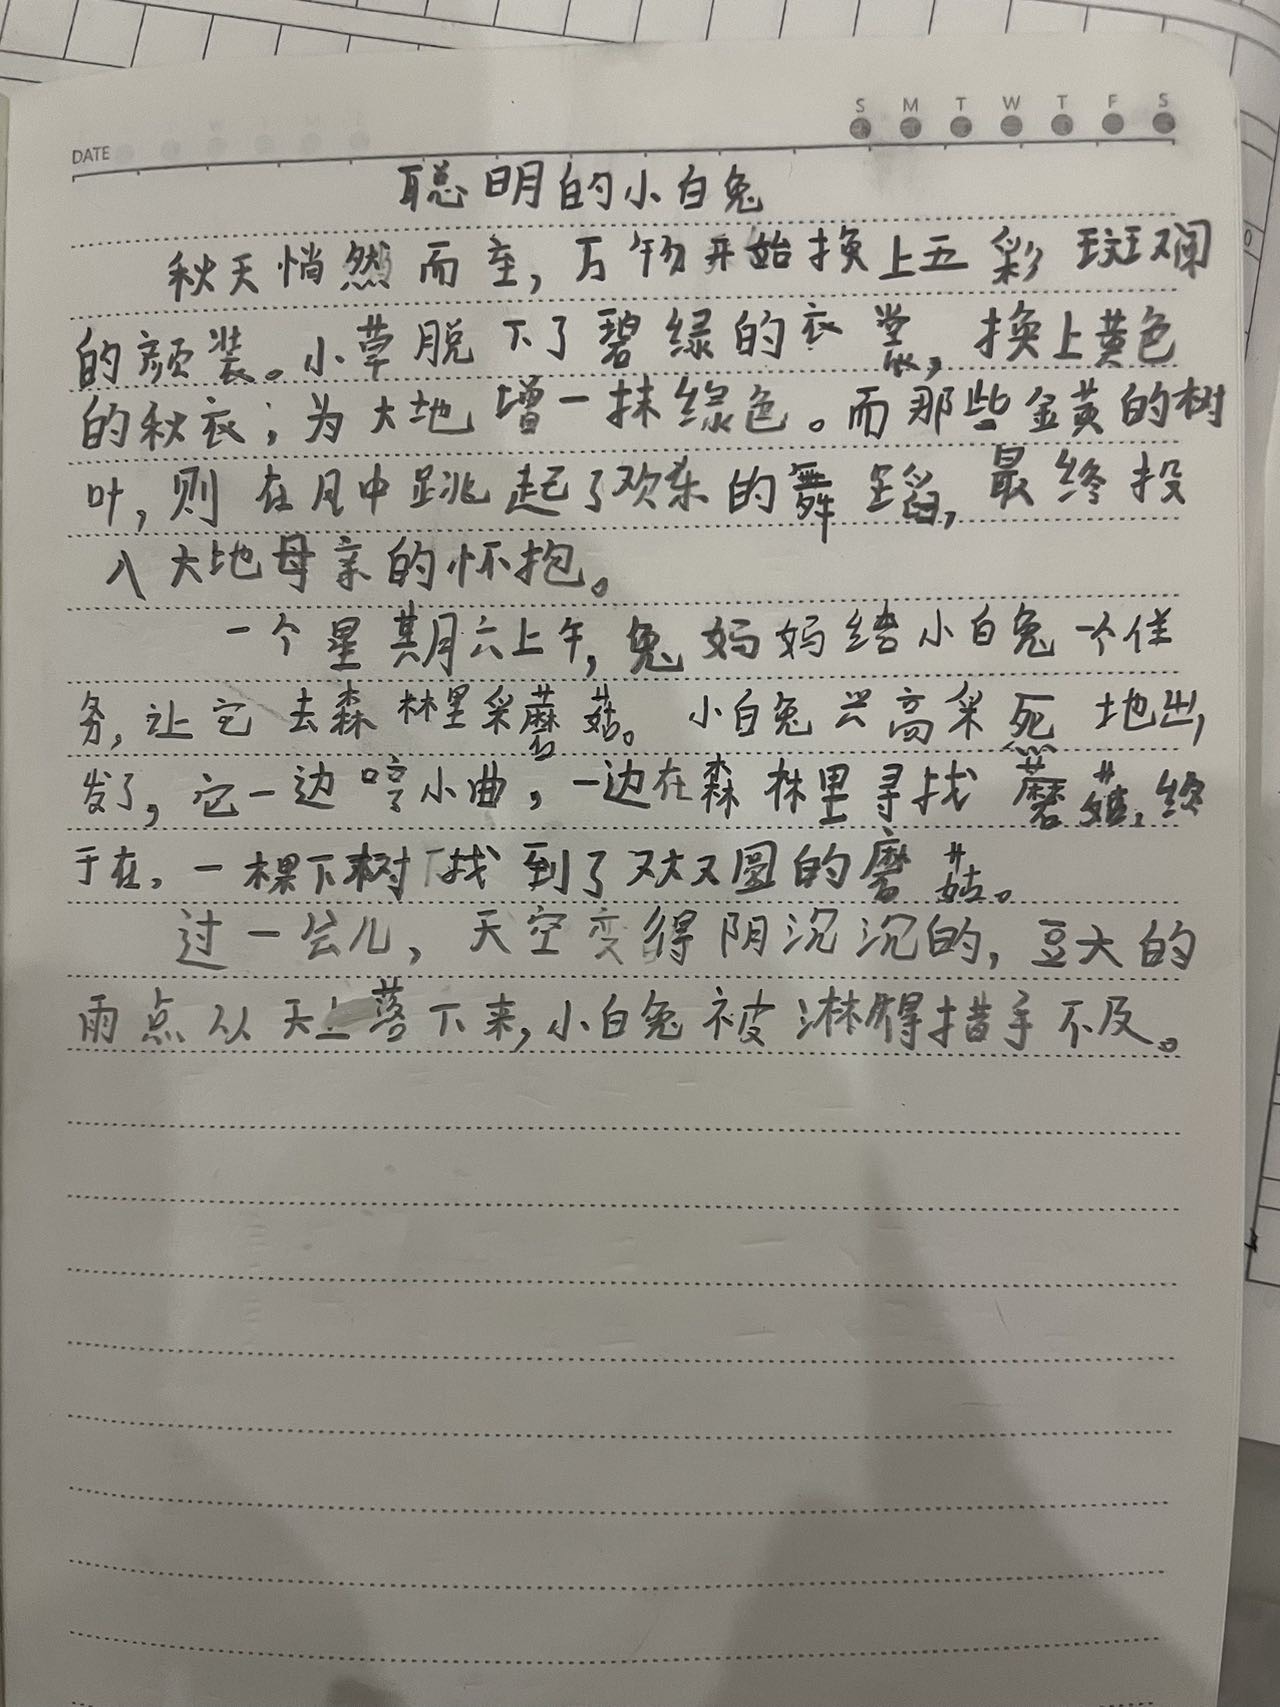 DATE
S M T W T F S
聪明的小白兔
秋天悄然而至，万物开始换上五彩斑斓
的颜装。小草脱下了碧绿的衣裳，换上黄色
的秋衣；为大地增一抹绿色。而那些金黄的树
叶，则在风中跳起了欢乐的舞蹈，最终投
入大地母亲的怀抱。
一个星期六上午，兔妈妈给小白兔一个任
务，让它去森林里采蘑菇。小白兔兴高采 地出
发了，它一边哼小曲，一边在森林里寻找蘑菇，终
于在，一棵下树 找到了又大又圆的蘑菇。
过一会儿，天空变得阴沉沉的，豆大的
雨点从天上落下来，小白兔被淋得措手不及。